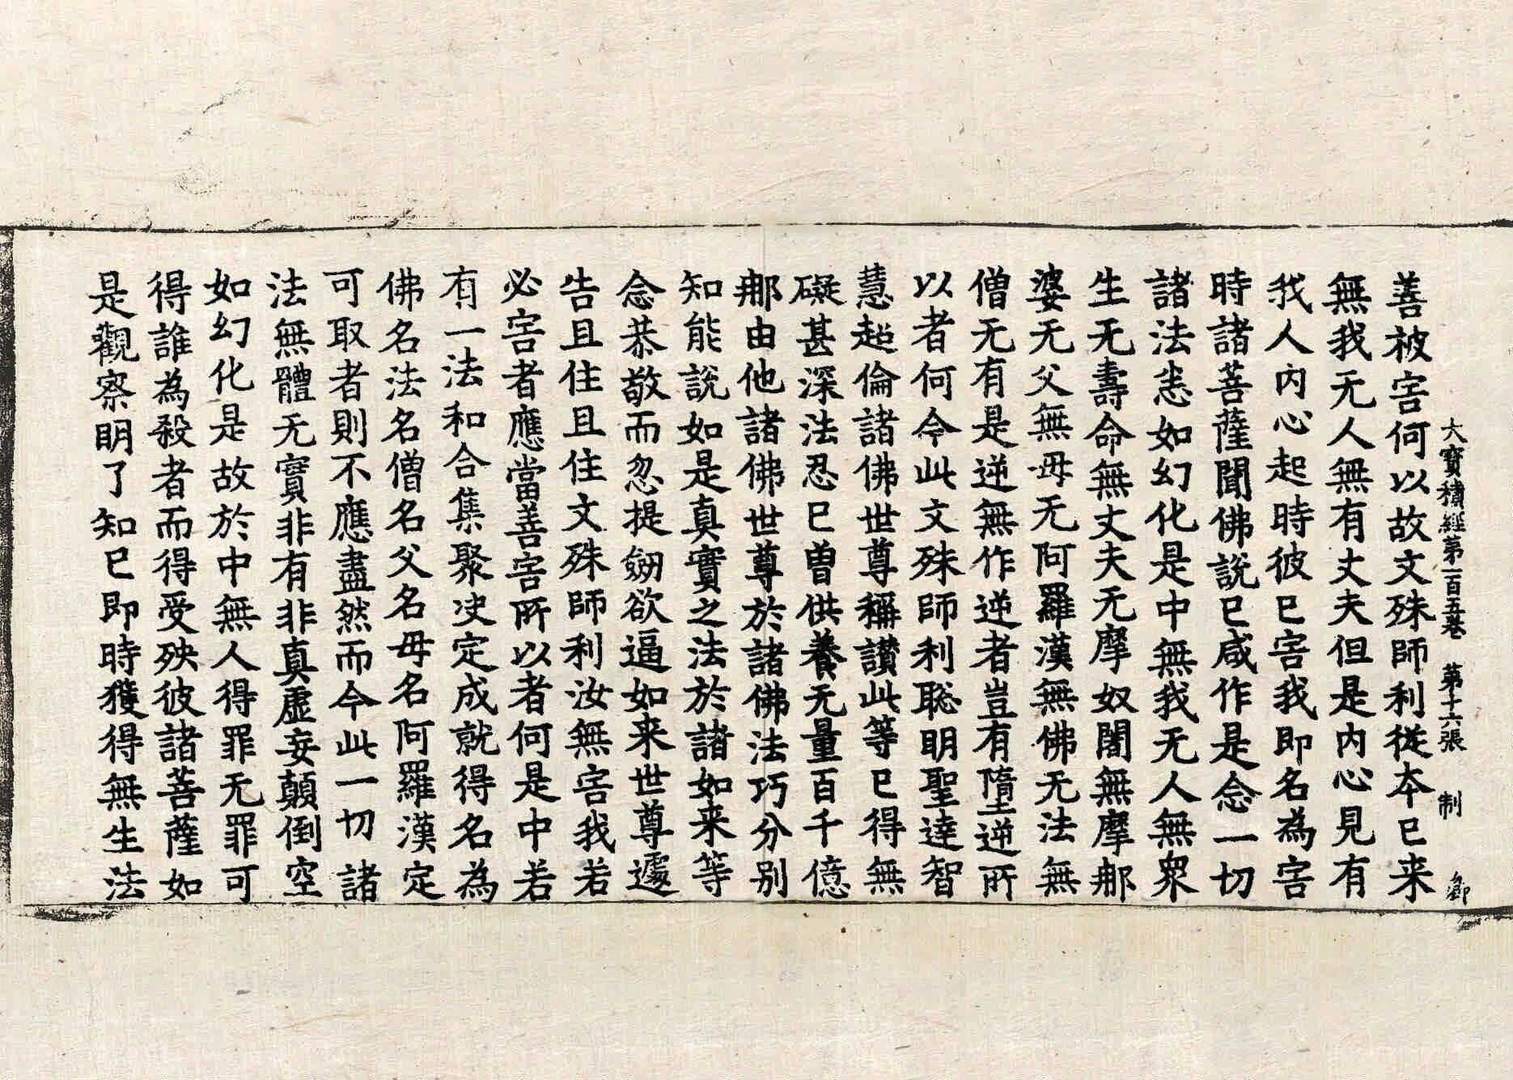 大寶積經第一百五卷　第十六張　制
善被害何以故文殊師利從本已来
無我无人無有丈夫但是内心見有
我人内心起時彼已害我即名為害
時諸菩薩聞佛說已咸作是念一切
諸法悉如幻化是中無我无人無衆
生无壽命無丈夫无摩奴闍無摩那
婆无父無母无阿羅漢無佛无法無
僧无有是逆無作逆者豈有墮逆所
以者何今此文殊師利聡明聖達智
慧超倫諸佛世尊稱讃此等已得無
礙甚深法忍已曽供養无量百千億
那由他諸佛世尊於諸佛法巧分別
知能說如是真實之法於諸如来等
念恭敬而忽提劒欲逼如来世尊遽
告且住且住文殊師利汝無害我若
必害者應當善害所以者何是中若
有一法和合集聚决定成就得名為
佛名法名僧名父名母名阿羅漢定
可取者則不應盡然而今此一切諸
法無體无實非有非真虛妄顛倒空
如幻化是故於中無人得罪无罪可
得誰為殺者而得受殃彼諸菩薩如
是觀察明了知已即時獲得無生法